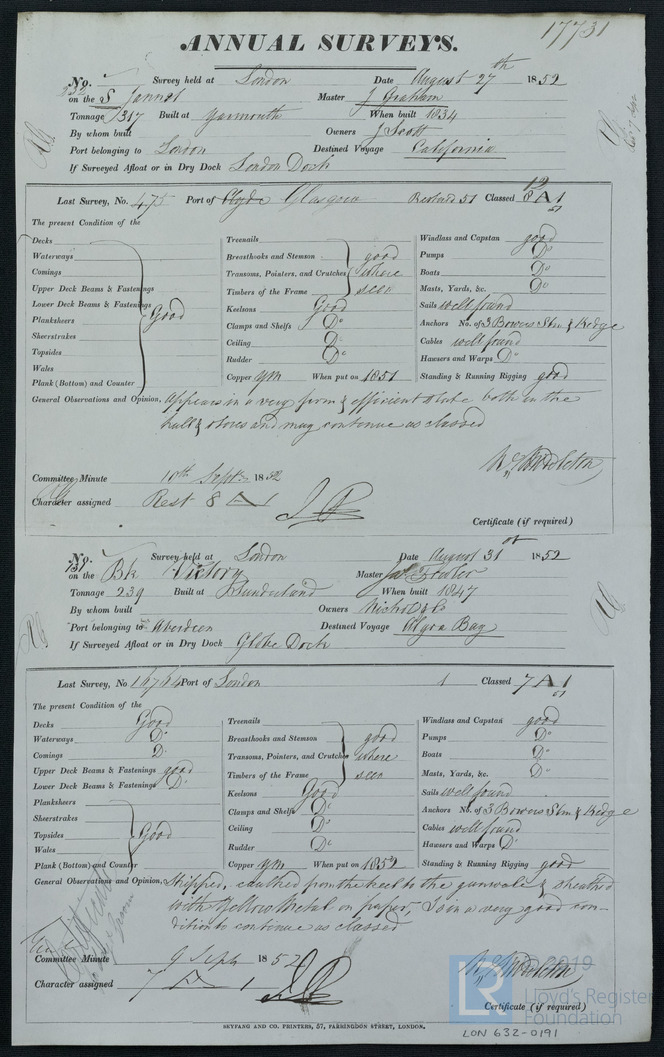 17731
ANNUAL SURVEYS.
No. 232 Survey held at London Date August 27th 1852
on the S Jannet Master J Graham
Tonnage 317 Built at Yarmouth When built 1834
By whom built Owners J Scott
Port belonging to London Destined Voyage California
If Surveyed Afloat or in Dry Dock London Dock
Last Survey, No. 475 Port of Clyde Glasgow Restored 51 Classed 8 A 1
The present Condition of the
Decks
Waterways
Comings
Upper Deck Beams & Fastenings
Lower Deck Beams & Fastenings
Planksheers Good
Sheerstrakes
Topsides
Wales
Plank (Bottom) and Counter
Treenails
Breasthooks and Stemson good
Transoms, Pointers, and Crutches where
Timbers of the Frame seen
Keelsons Good
Clamps and Shelfs Do
Ceiling Do
Rudder Do
Copper YM When put on 1851
Windlass and Capstan good
Pumps Do
Boats Do
Masts, Yards, &c. Do
Sails well found
Anchors No. of 3 Bowers Stm & Kedge
Cables well found
Hawsers and Warps Do
Standing & Running Rigging good
General Observations and Opinion, Appears in a very firm & efficient state both in the
hull & stores and may continue as classed
Committee Minute 10th Septr 1852
Character assigned Rest 8 A 1
Certificate (if required)
No. 737 Survey held at London Date August 31st 1852
on the Bk Victory Master
Tonnage 239 Built at Sunderland When built 1847
By whom built Owners
Port belonging to Aberdeen Destined Voyage Algoa Bay
If Surveyed Afloat or in Dry Dock Globe Dock
Last Survey, No Port of London Classed 7 A 1
The present Condition of the
Decks Good
Waterways Do
Comings Do
Upper Deck Beams & Fastenings good
Lower Deck Beams & Fastenings Do
Planksheers
Sheerstrakes
Topsides Good
Wales
Plank (Bottom) and Counter
Treenails
Breasthooks and Stemson good
Transoms, Pointers, and Crutches where
Timbers of the Frame seen
Keelsons Good
Clamps and Shelfs Do
Ceiling Do
Rudder Do
Copper YM When put on 1852
Windlass and Capstan good
Pumps Do
Boats Do
Masts, Yards, &c. Do
Sails well found
Anchors No. of 3 Bowers Stm & Kedge
Cables well found
Hawsers and Warps Do
Standing & Running Rigging good
General Observations and Opinion, Stripped, caulked from the keel to the gunwale & sheathed
with Yellow Metal on paper, Is in a very good con-
dition to continue as classed
Committee Minute 9 Septr 1852
Character assigned 7 A 1
Certificate (if required)
SKYFANG AND CO. PRINTERS, 57, FARRINGDON STREET, LONDON.
LR ©2019
Lloyd's Register
Foundation
LON 632-0191